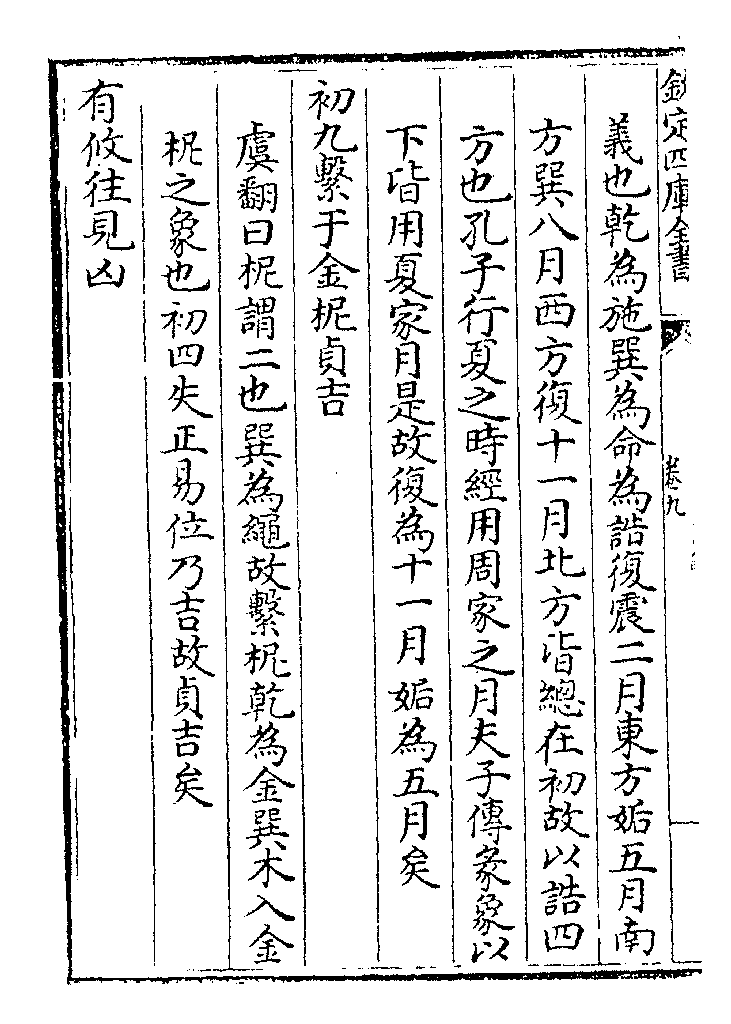 欽定四庫全書
卷九
義也乾為施巽為命為誥復震二月東方姤五月南
方巽八月西方復十一月北方皆總在初故以誥四
方也孔子行夏之時經用周家之月夫子傳彖象以
下皆用夏家月是故復為十一月姤為五月矣
初九繫于金柅貞吉
虞翻曰柅謂二也巽為繩故繫柅乾為金巽木入金
柅之象也初四失正易位乃吉故貞吉矣
有攸往見凶